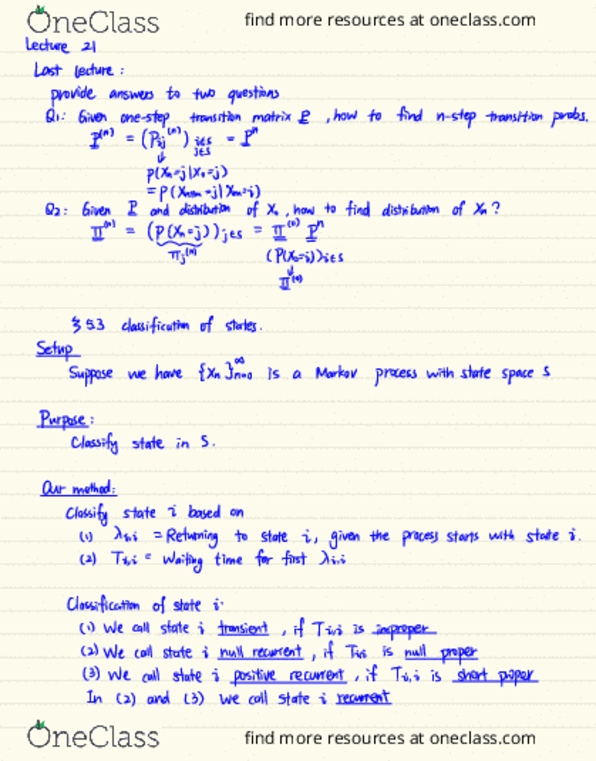 OneClass find more resources at oneclass.com
Lecture 21
Last lecture :
provide answers to two questions
Q1: Given one-step transition matrix P , how to find n-step transition probs.
P^(n) = (P_ij^(n))_i∈S j∈S = P^n
↓
P(Xn=j|X0=j)
= P(Xn+m=j|Xm=i)
Q2: Given P and distribution of X0 , how to find distribution of Xn ?
Π^(n) = (P(Xn=j))_j∈S = Π^(0) P^n
π_j^(n) (P(X0=i))_i∈S
↓
Π^(0)
§ 5.3 classification of states.
Setup
Suppose we have {Xn}_n=0^∞ is a Markov process with state space S
Purpose :
Classify state in S.
Our method:
Classify state i based on
(1) λi,i = Returning to state i, given the process starts with state i.
(2) Ti,i = Waiting time for first λi,i
Classification of state i:
(1) We call state i transient , if Ti,i is improper
(2) We call state i null recurrent , if Ti,i is null proper
(3) We call state i positive recurrent , if Ti,i is short proper
In (2) and (3) we call state i recurrent
OneClass find more resources at oneclass.com